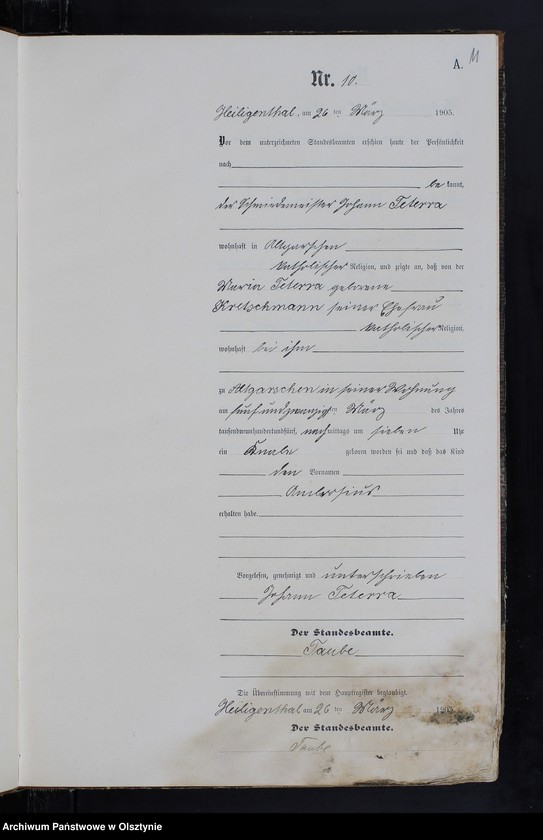 A. 11
Nr. 10.
Heiligenthal, am 26 ten März 1905.
Vor dem unterzeichneten Standesbeamten erschien heute der Persönlichkeit
nach
be kannt,
der Schmiedemeister Johann Teterra
wohnhaft in Altgarschen
katholischer Religion, und zeigte an, daß von der
Maria Teterra geborene
Kretschmann seiner Ehefrau
katholischer Religion,
wohnhaft bei ihm
zu Altgarschen in seiner Wohnung
am fünfundzwanzigsten März des Jahres
tausendneunhundertundfünf, nachmittags um sieben Uhr
ein Knabe geboren worden sei und daß das Kind
den Vornamen
Ambrosius
erhalten habe.
Vorgelesen, genehmigt und unterschrieben
Johann Teterra
Der Standesbeamte.
Taube
Die Übereinstimmung mit dem Hauptregister beglaubigt.
Heiligenthal am 26 ten März 1905
Der Standesbeamte.
Taube
Archiwum Państwowe w Olsztynie